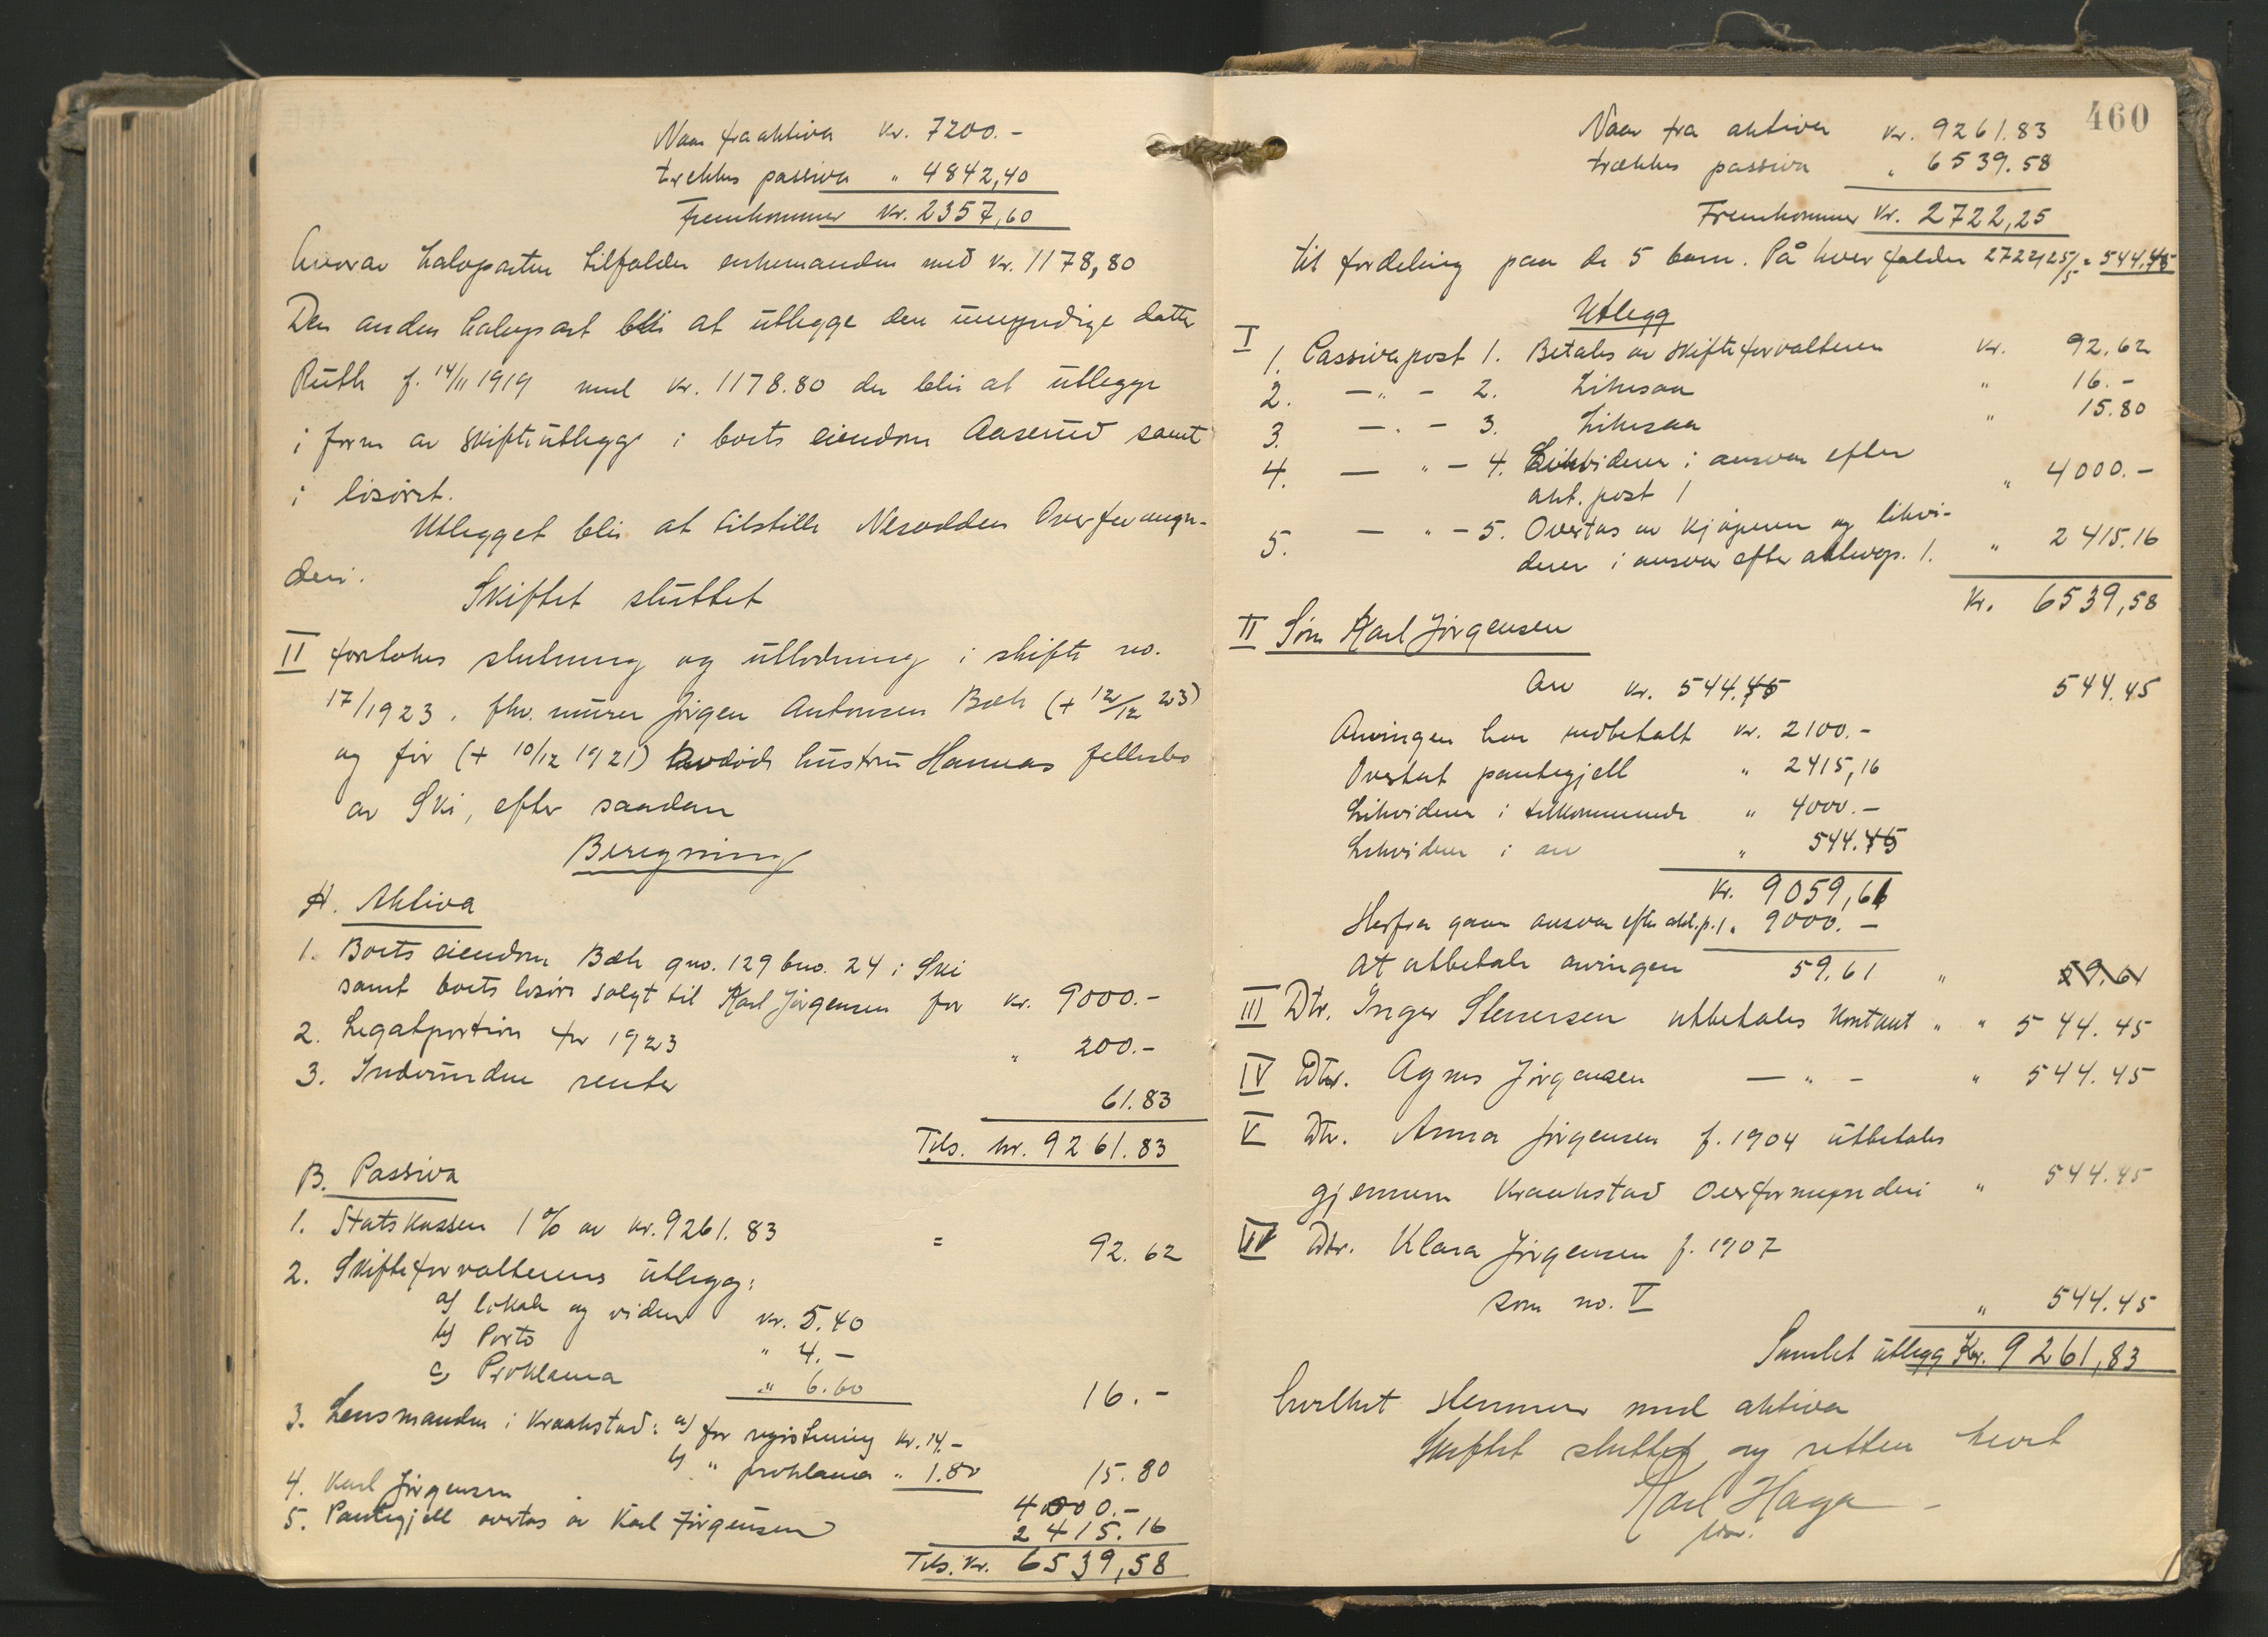 Naar fra aktiva kr. 7200.-
trekkes passiva " 4842,40
Fremkommer kr. 2357,60
hvorav halvparten tilfalder enkemanden med kr. 1178,80
Den anden halvpart blir at utlegge den umyndige datter
Ruth f. 14/11 1919 med kr. 1178.80 der blir at utlegge
i form av skifteutlegg i boets eiendom Aaserud samt
i løsøret.
Utlegget blir at tilstille Nesodden Overformyn-
deri.
Skiftet sluttet
II foretokes slutning og utlodning i skifte no.
17/1923. fhv. murer Jørgen Antonsen Bæk (+ 12/12 23)
og før (+ 10/12 1921) avdøde hustru Hannas fellesbo
av Ski, efter saadan
Beregning
A. Aktiva
1. Boets eiendom Bæk gno. 129 bno. 24 i Ski
samt boets løsøre solgt til Karl Jørgensen for kr. 9000.-
2. Legatportion for 1923 " 200.-
3. Indvundne renter 61.83
Tils. kr. 9261.83
B. Passiva
1. Statskassen 1% av kr. 9261.83 = 92.62
2. Skifteforvalterens utlegg:
a) lokale og vidner kr. 5.40
b) Porto " 4.-
c) Proklama " 6.60 16.-
3. Lensmanden i Kraakstad: a) for registrering kr. 14.-
b) " proklama " 1.80 15.80
4. Karl Jørgensen 4000.-
5. Pantegjell overtas av Karl Jørgensen 2415.16
Tils. kr. 6539,58
460
Naar fra aktiva kr. 9261.83
trækkes passiva " 6539.58
Fremkommer kr. 2722,25
til fordeling paa de 5 barn. På hver falder 2722,25/5 = 544.45
Utlegg
I 1. Passivapost 1. Betales av skifteforvalteren kr. 92.62
2. - " - 2. Likesaa " 16.-
3. - " - 3. Likesaa " 15.80
4. - " - 4. Likviderer i ansvar efter
akt. post 1 " 4000.-
5. - " - 5. Overtas av kjøperen og likvi-
derer i ansvar efter aktivap. 1. " 2415.16
Kr. 6539,58
II Søn Karl Jørgensen
Arv kr. 544.45 544.45
Arvingen har indbetalt kr. 2100.-
Overtat pantegjell " 2415,16
Likviderer i tilkommende " 4000.-
Likviderer i arv " 544.45
Kr. 9059,61
Herfra gaar ansvar efter akt.p. 1 " 9000.-
At utbetale arvingen 59.61 " 59.61
III Dtr. Inger Stenersen utbetales kontant " " 544.45
IV Dtr. Agnes Jørgensen - " - " 544.45
V Dtr. Anna Jørgensen f. 1904 utbetales
gjennem Kraakstad Overformynderi " 544.45
VI Dtr. Klara Jørgensen f. 1907
som no. V " 544.45
Samlet utlegg Kr. 9261,83
hvilket stemmer med aktiva
Skiftet sluttet og retten hevet
Karl Haga